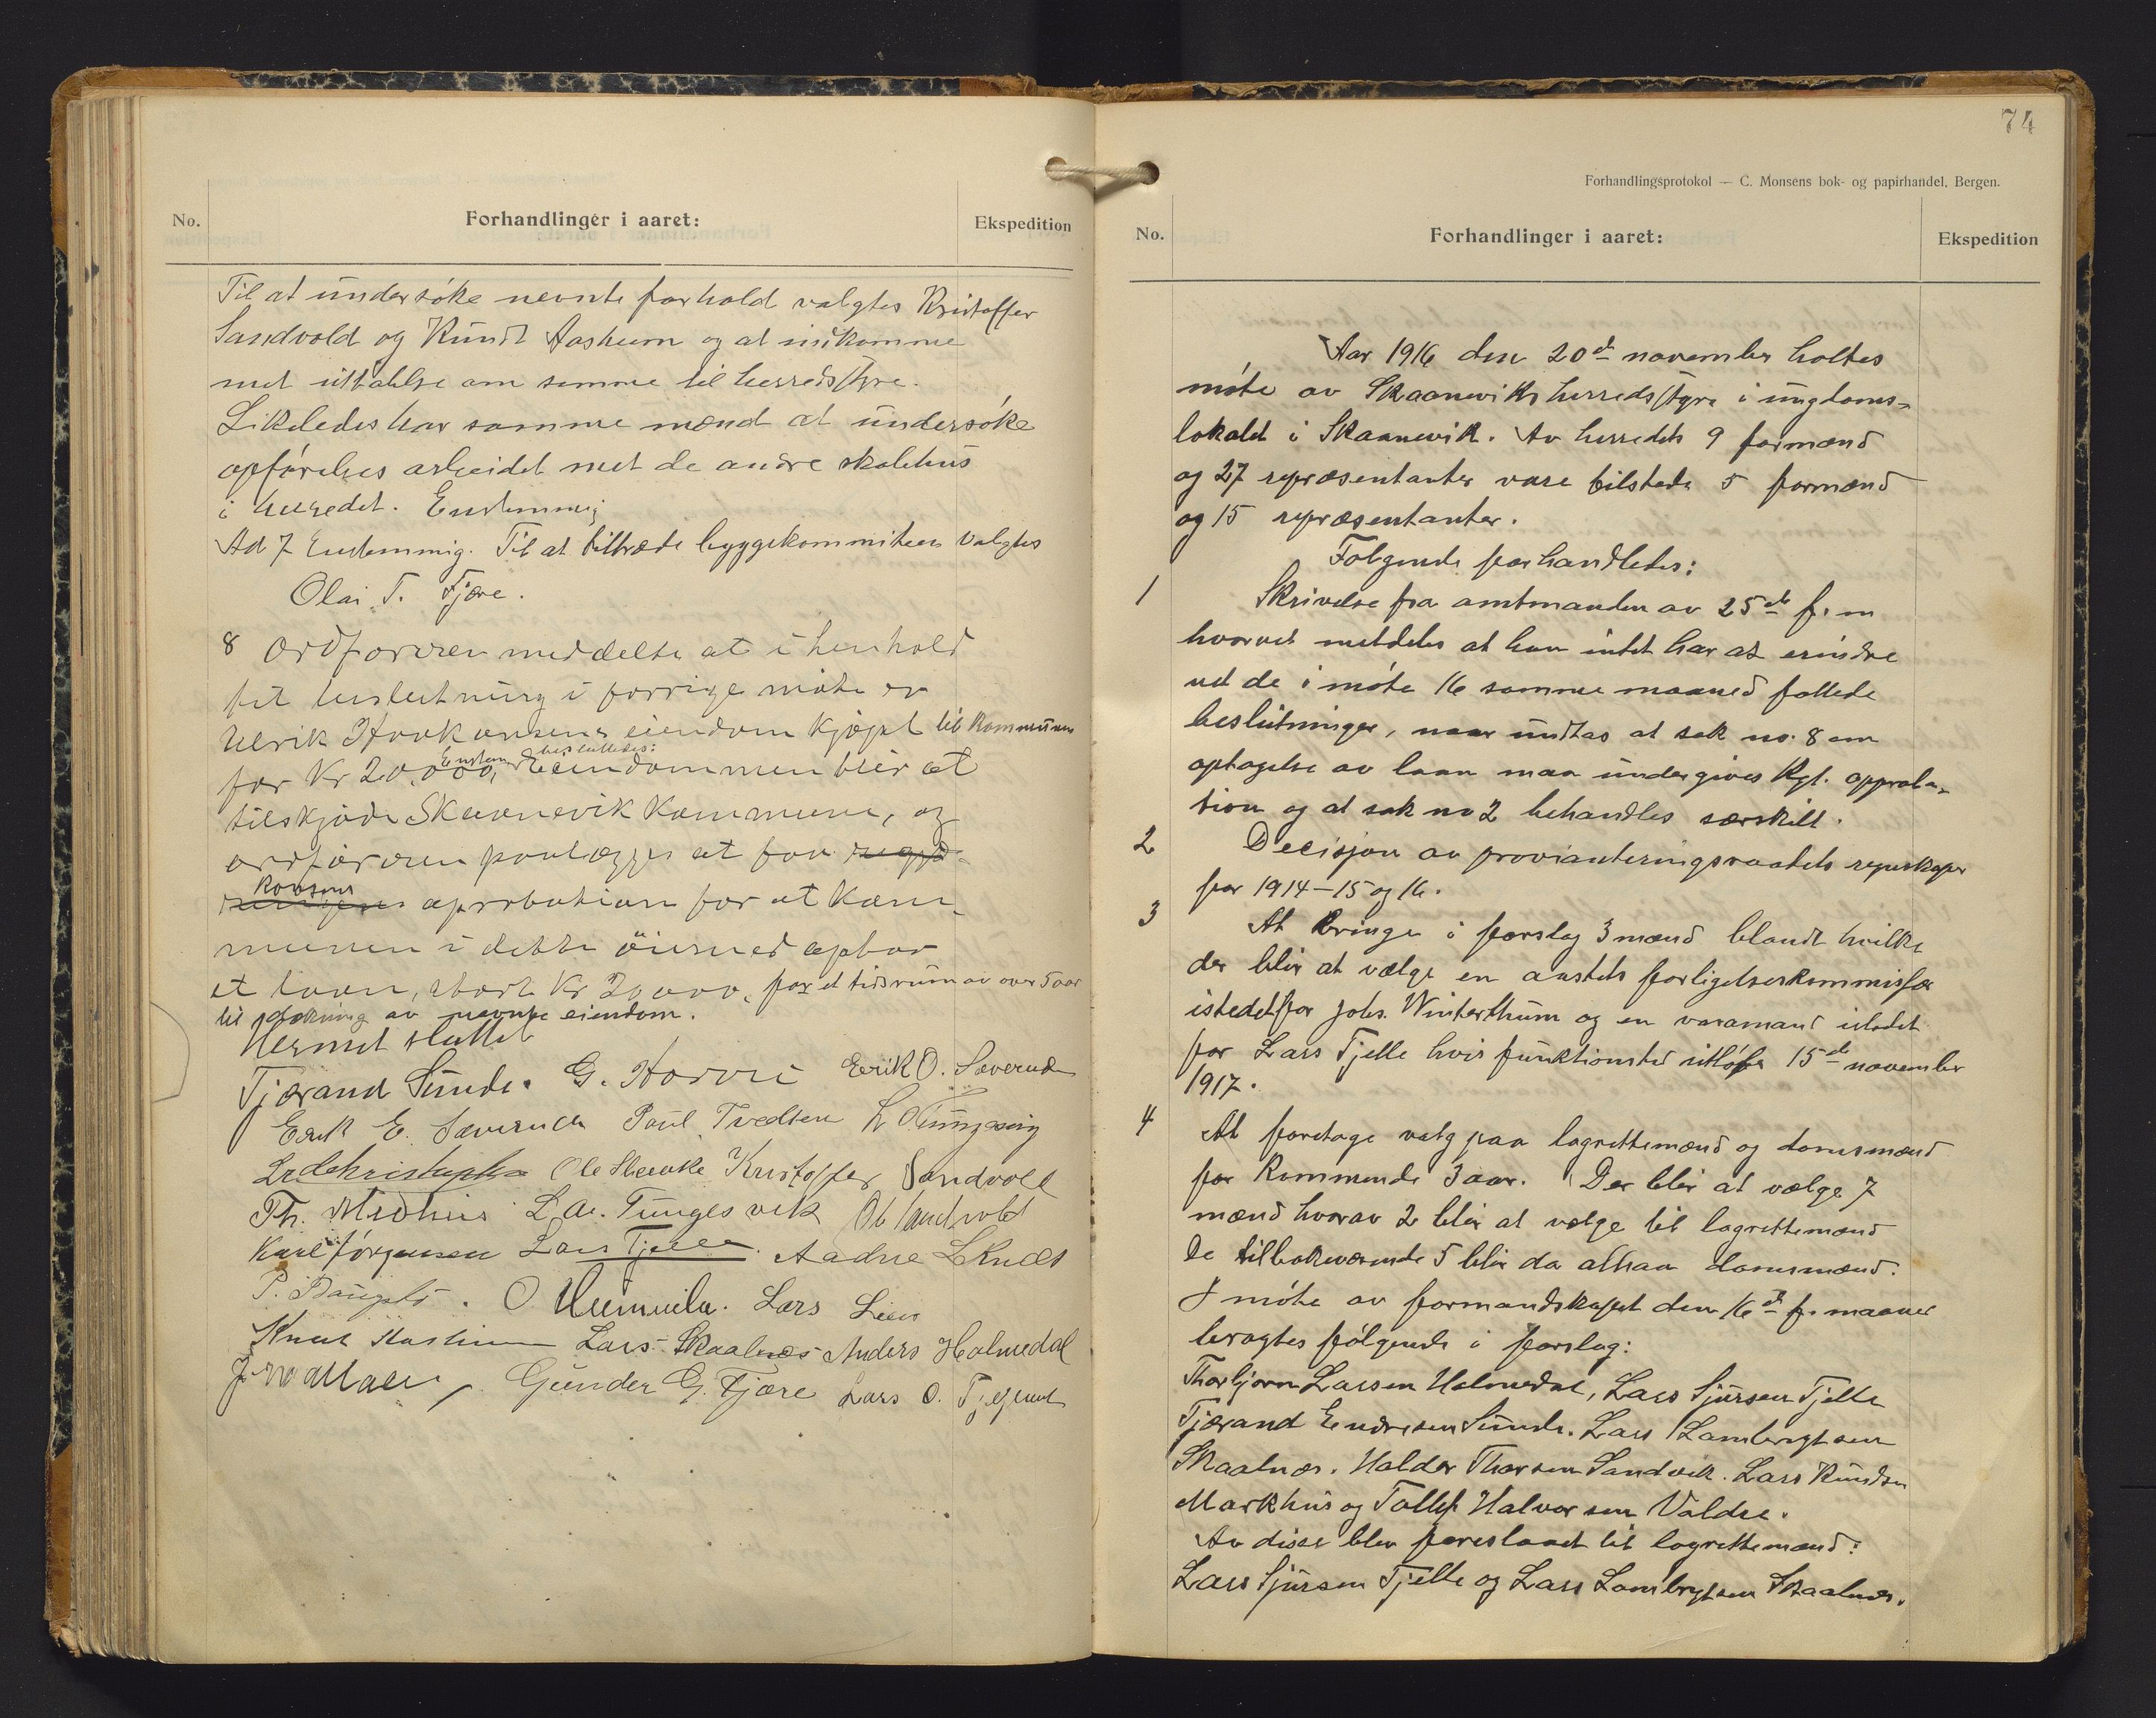 No.
Forhandlinger i aaret:
Ekspedition
Til at undersöke nevnte forhold valgtes Kristoffer
Sandvold og Knudt Aasheim og at indkomme
met uttalelse om samme til herredstyre.
Likeledes har samme mænd at undersöke
opförelses arbeidet met de andre skolehus
i herredet. Enstemmig
Ad 7 Enstemmig. Til at tiltræde byggekommiteen valgtes
Olai T. Fjære.
8 Ordföreren meddelte at i henhold
til beslutning i forrige möte er
Ulrik Haakonsens eiendom kjöpt til kommunen
Enstem beslutledes:
for Kr 20.000, Eiendommen blir at
tilskjöde Skaanevik Kommune, og
ordföreren paalægges at faa
aprobation for at Kom-
munen i dette öiemed optar
et laan, stort Kr 20,000, for et tidsrum av over 5 aar
til dækning av nævnte eiendom.
Hermet sluttet
Tjærand Sunde. G. Horvei Erik O. Sæverude
Erik E. Sæverude Paul Tvedten
Ole Kristoffer Sandvold
Th. Midhus L. Tungesvik Ol Sandvold
Karl Jörgensen Lars Tjelle. Aadne
P. O. Lars Lien
Knut Lars Skaalnes Anders Holmedal
Gunder G. Fjære Lars O.
74
Forhandlingsprotokol — C. Monsens bok- og papirhandel, Bergen.
No.
Forhandlinger i aaret:
Ekspedition
Aar 1916 den 20de november holtes
möte av Skaaneviks herredstyre i ungdoms-
lokalet i Skaanevik. Av herredets 9 formænd
og 27 repræsentanter vare tilstede 5 formænd
og 15 repræsentanter.
Følgende forhandledes:
1 Skrivelse fra amtmanden av 25de f. m
hvorved meddeles at han intet har at erindre
ved de i möte 16 samme maaned fattede
beslutninger, naar undtas at sak no. 8 om
optagelse av laan maa undergives Kgl. approba-
tion og at sak no 2 behandles særskilt.
2 Decisjon av provianteringsraadets regnskaper
for 1914-15 og 16.
3 At bringe i forslag 3 mænd blandt hvilke
der blir at vælge en anstets forligelseskommissær
istedetfor Johs. Winterthun og en varamand istedet
for Lars Tjelle hvis funktionstid utlöper 15de november
1917.
4 At foretage valg paa lagrettemænd og domsmænd
for kommende 3 aar. Der blir at vælge 7
mænd hvorav 2 blir at vælge til lagrettemænd
de tilbakeværende 5 blir da altsaa domsmænd.
I möte av formandskapet den 16de f. maaned
bragtes fölgende i forslag:
Thorbjørn Larsen Holmedal, Lars Sjursen Tjelle
Tjærand Endresen Sunde. Lars Lambregtsen
Skaalnes. Haldor Thorsen Sandvik. Lars Knudsen
Markhus og Tollef Halvorsen Valdre.
Av disse blev foreslaaet til lagrettemænd:
Lars Sjursen Tjelle og Lars Lambregtsen Skaalnes.